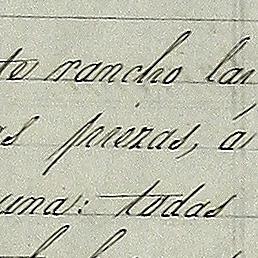 te rancho las
as piezas, á
una: todas